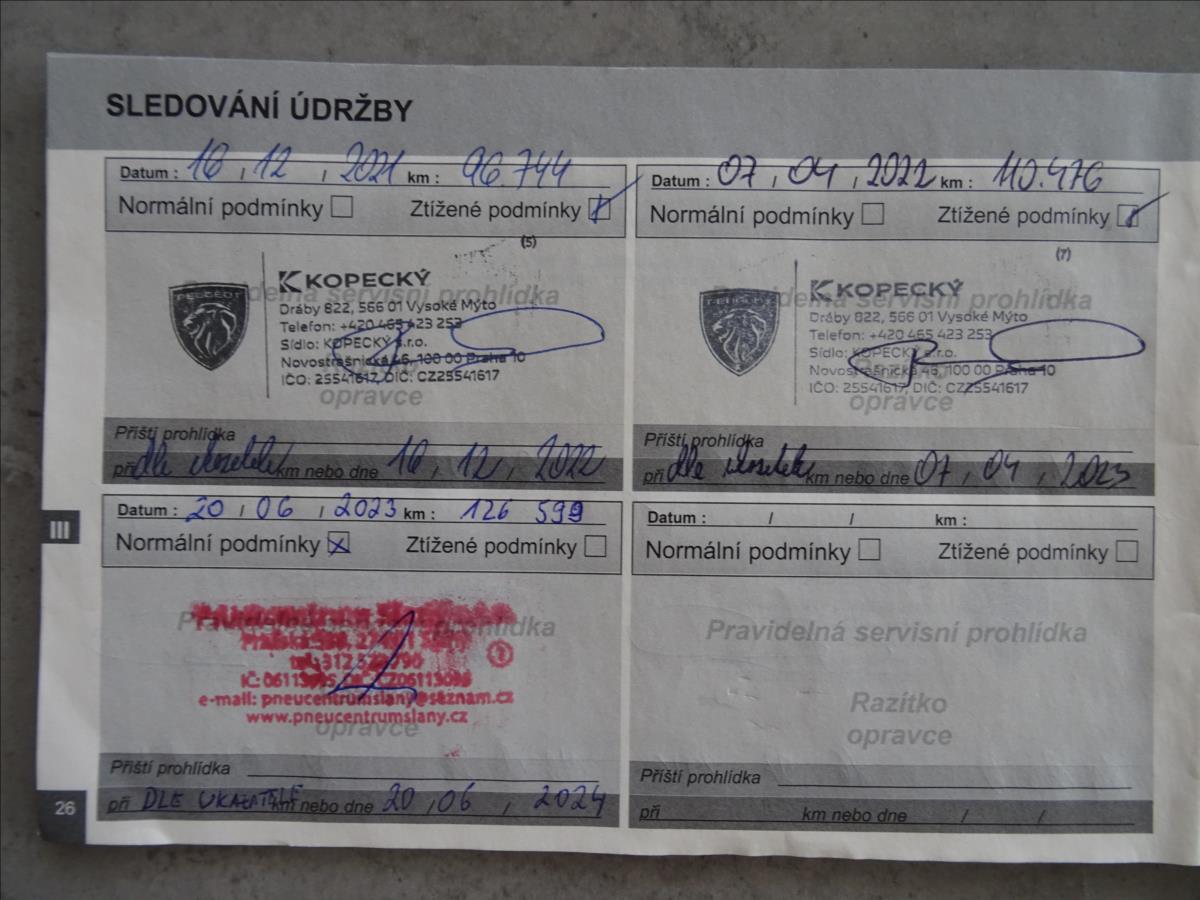 SLEDOVÁNÍ ÚDRŽBY
Datum : 16 / 12 / 2021 km : 96.744
Normální podmínky Ztížené podmínky
(5)
PEUGEOT
KOPECKÝ
Pravidelná servisní prohlídka
Dráby 822, 566 01 Vysoké Mýto
Telefon: +420 465 423 253
Sídlo: KOPECKÝ s.r.o.
Novostrašnická 46, 100 00 Praha 10
IČO: 25541617, DIČ: CZ25541617
opravce
Příští prohlídka
při dle km nebo dne 16 , 12 , 2022
Datum : 07 / 04 / 2022 km : 110.476
Normální podmínky Ztížené podmínky
(7)
PEUGEOT
KOPECKÝ
Pravidelná servisní prohlídka
Dráby 822, 566 01 Vysoké Mýto
Telefon: +420 465 423 253
Sídlo: KOPECKÝ s.r.o.
Novostrašnická 46, 100 00 Praha 10
IČO: 25541617, DIČ: CZ25541617
opravce
Příští prohlídka
při dle km nebo dne 07 , 04 , 2023
III
Datum : 20 / 06 / 2023 km : 126 599
Normální podmínky X Ztížené podmínky
prohlídka
tel. 312
IČ: DIČ:
e-mail: pneucentrumslany@seznam.cz
www.pneucentrumslany.cz
opravce
Příští prohlídka
při DLE UKAZATELE km nebo dne 20 , 06 , 2024
Datum : / / km :
Normální podmínky Ztížené podmínky
Pravidelná servisní prohlídka
Razítko
opravce
Příští prohlídka
při km nebo dne / /
26